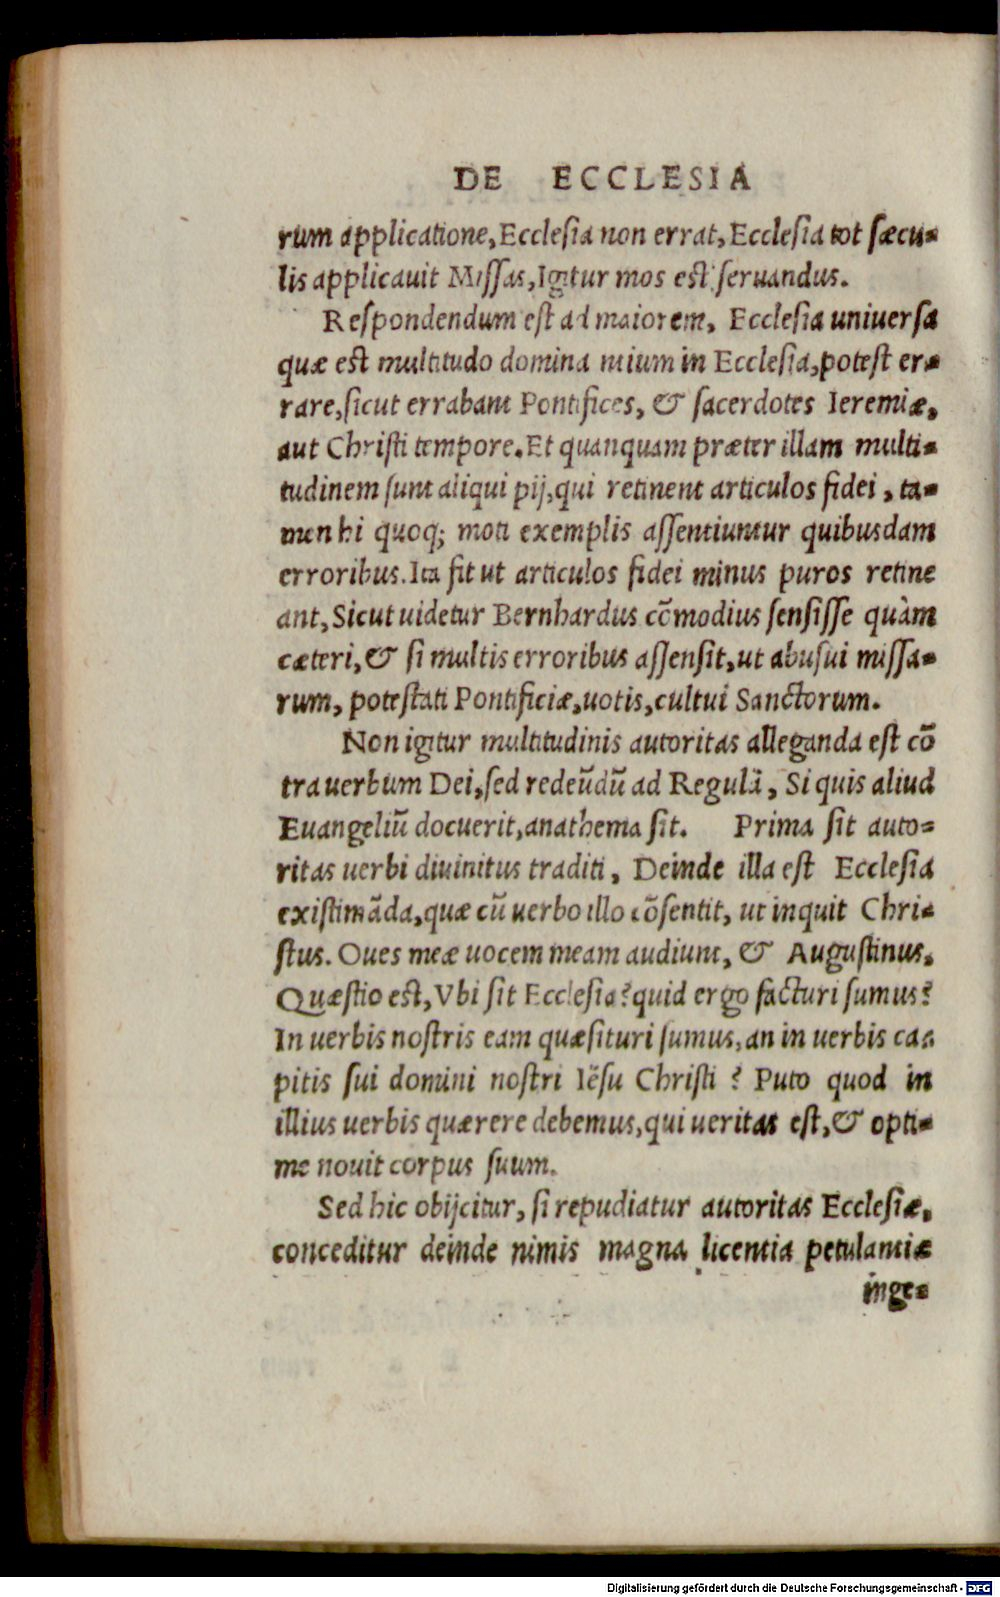 DE ECCLESIA
rum applicatione, Ecclesia non errat, Ecclesia tot sæcu-
lis applicauit Missas, Igitur mos est seruandus.
Respondendum est ad maiorem, Ecclesia uniuersa
quæ est multitudo domina ntium in Ecclesia, potest er-
rare, sicut errabant Pontifices, & sacerdotes Ieremiæ,
aut Christi tempore. Et quanquam præter illam multi-
tudinem sunt aliqui pij, qui retinent articulos fidei, ta-
men hi quoq; moti exemplis assentiuntur quibusdam
erroribus. Ita fit ut articulos fidei minus puros retine
ant, Sicut uidetur Bernhardus cōmodius sensisse quàm
cæteri, & si multis erroribus assensit, ut abusui missa-
rum, potestati Pontificiæ, uotis, cultui Sanctorum.
Non igitur multitudinis autoritas alleganda est cō
tra uerbum Dei, sed redeūdū ad Regulā, Si quis aliud
Euangeliū docuerit, anathema sit. Prima sit auto-
ritas uerbi diuinitus traditi, Deinde illa est Ecclesia
existimāda, quæ cū uerbo illo cōsentit, ut inquit Chri-
stus. Oues meæ uocem meam audiunt, & Augustinus.
Quæstio est, Vbi sit Ecclesia? quid ergo facturi sumus?
In uerbis nostris eam quæsituri sumus, an in uerbis ca-
pitis sui domini nostri Iēsu Christi? Puto quod in
illius uerbis quærere debemus, qui ueritas est, & opti-
me nouit corpus suum.
Sed hic obijcitur, si repudiatur autoritas Ecclesiæ,
conceditur deinde nimis magna licentia petulantiæ
inge-
Digitalisierung gefördert durch die Deutsche Forschungsgemeinschaft - DFG